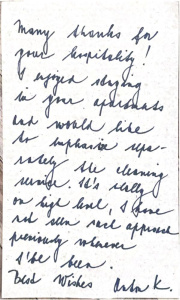 Many thanks for
your hospitality!
I enjoyed staying
in your apartments
and would like
to emphasize sepa-
rately the cleaning
service. It's really
on high level, I have
not seen such approach
previously wherever
I've been.
Best Wishes Anton K.